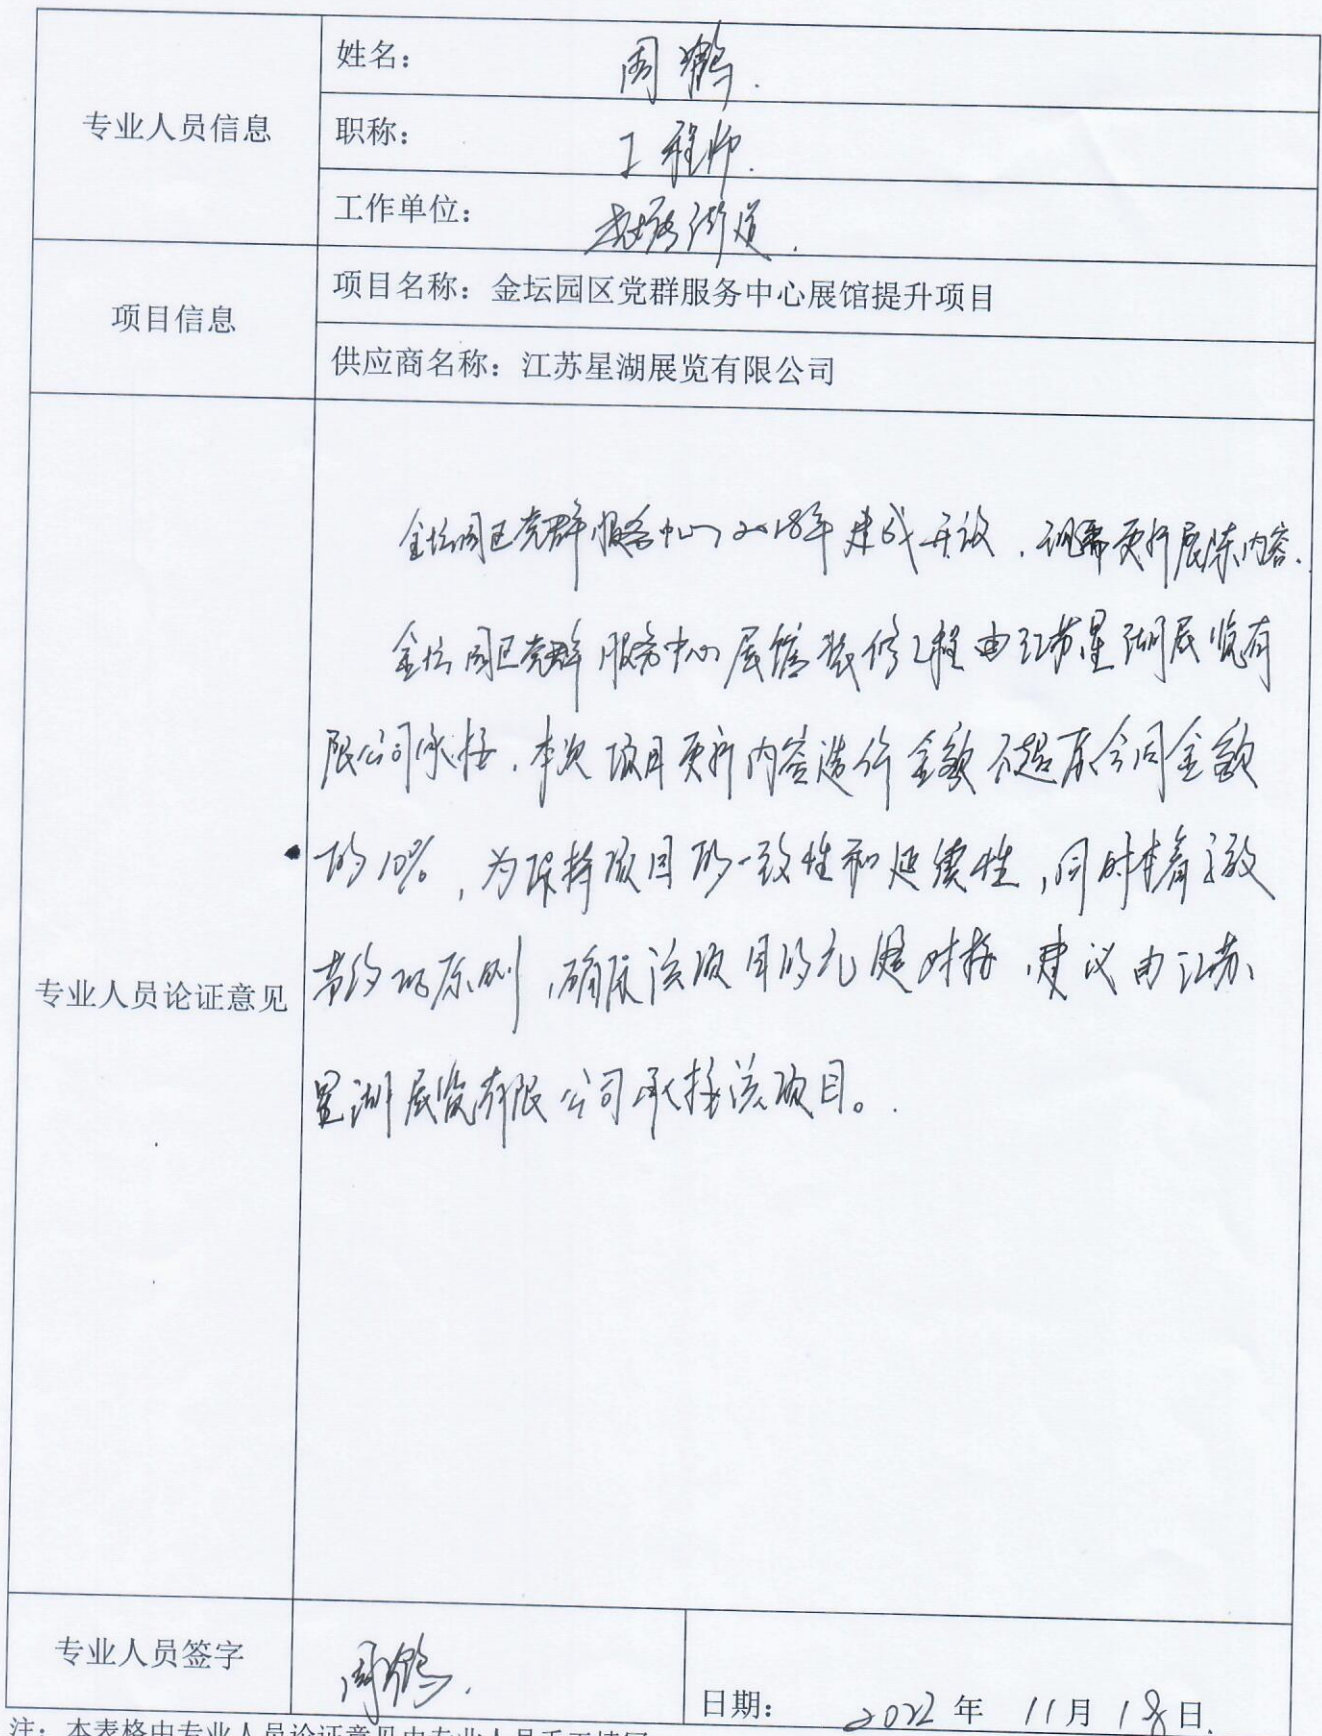 专业人员信息
姓名：周鹤.
职称：工程师.
工作单位：街道.
项目信息
项目名称：金坛园区党群服务中心展馆提升项目
供应商名称：江苏星湖展览有限公司
专业人员论证意见
金坛园区党群服务中心于2018年建成开放，现需更新展陈内容.
金坛园区党群服务中心展馆装修工程由江苏星湖展览有
限公司承接，本次项目更新内容造价金额不超原合同金额
的10%，为保持项目的一致性和延续性，同时本着
节约的原则，确保该项目的无缝对接，建议由江苏
星湖展览有限公司承接该项目。
专业人员签字
周鹤.
日期：2022年 11月 18日.
注：本表格中专业人员论证意见由专业人员手工填写